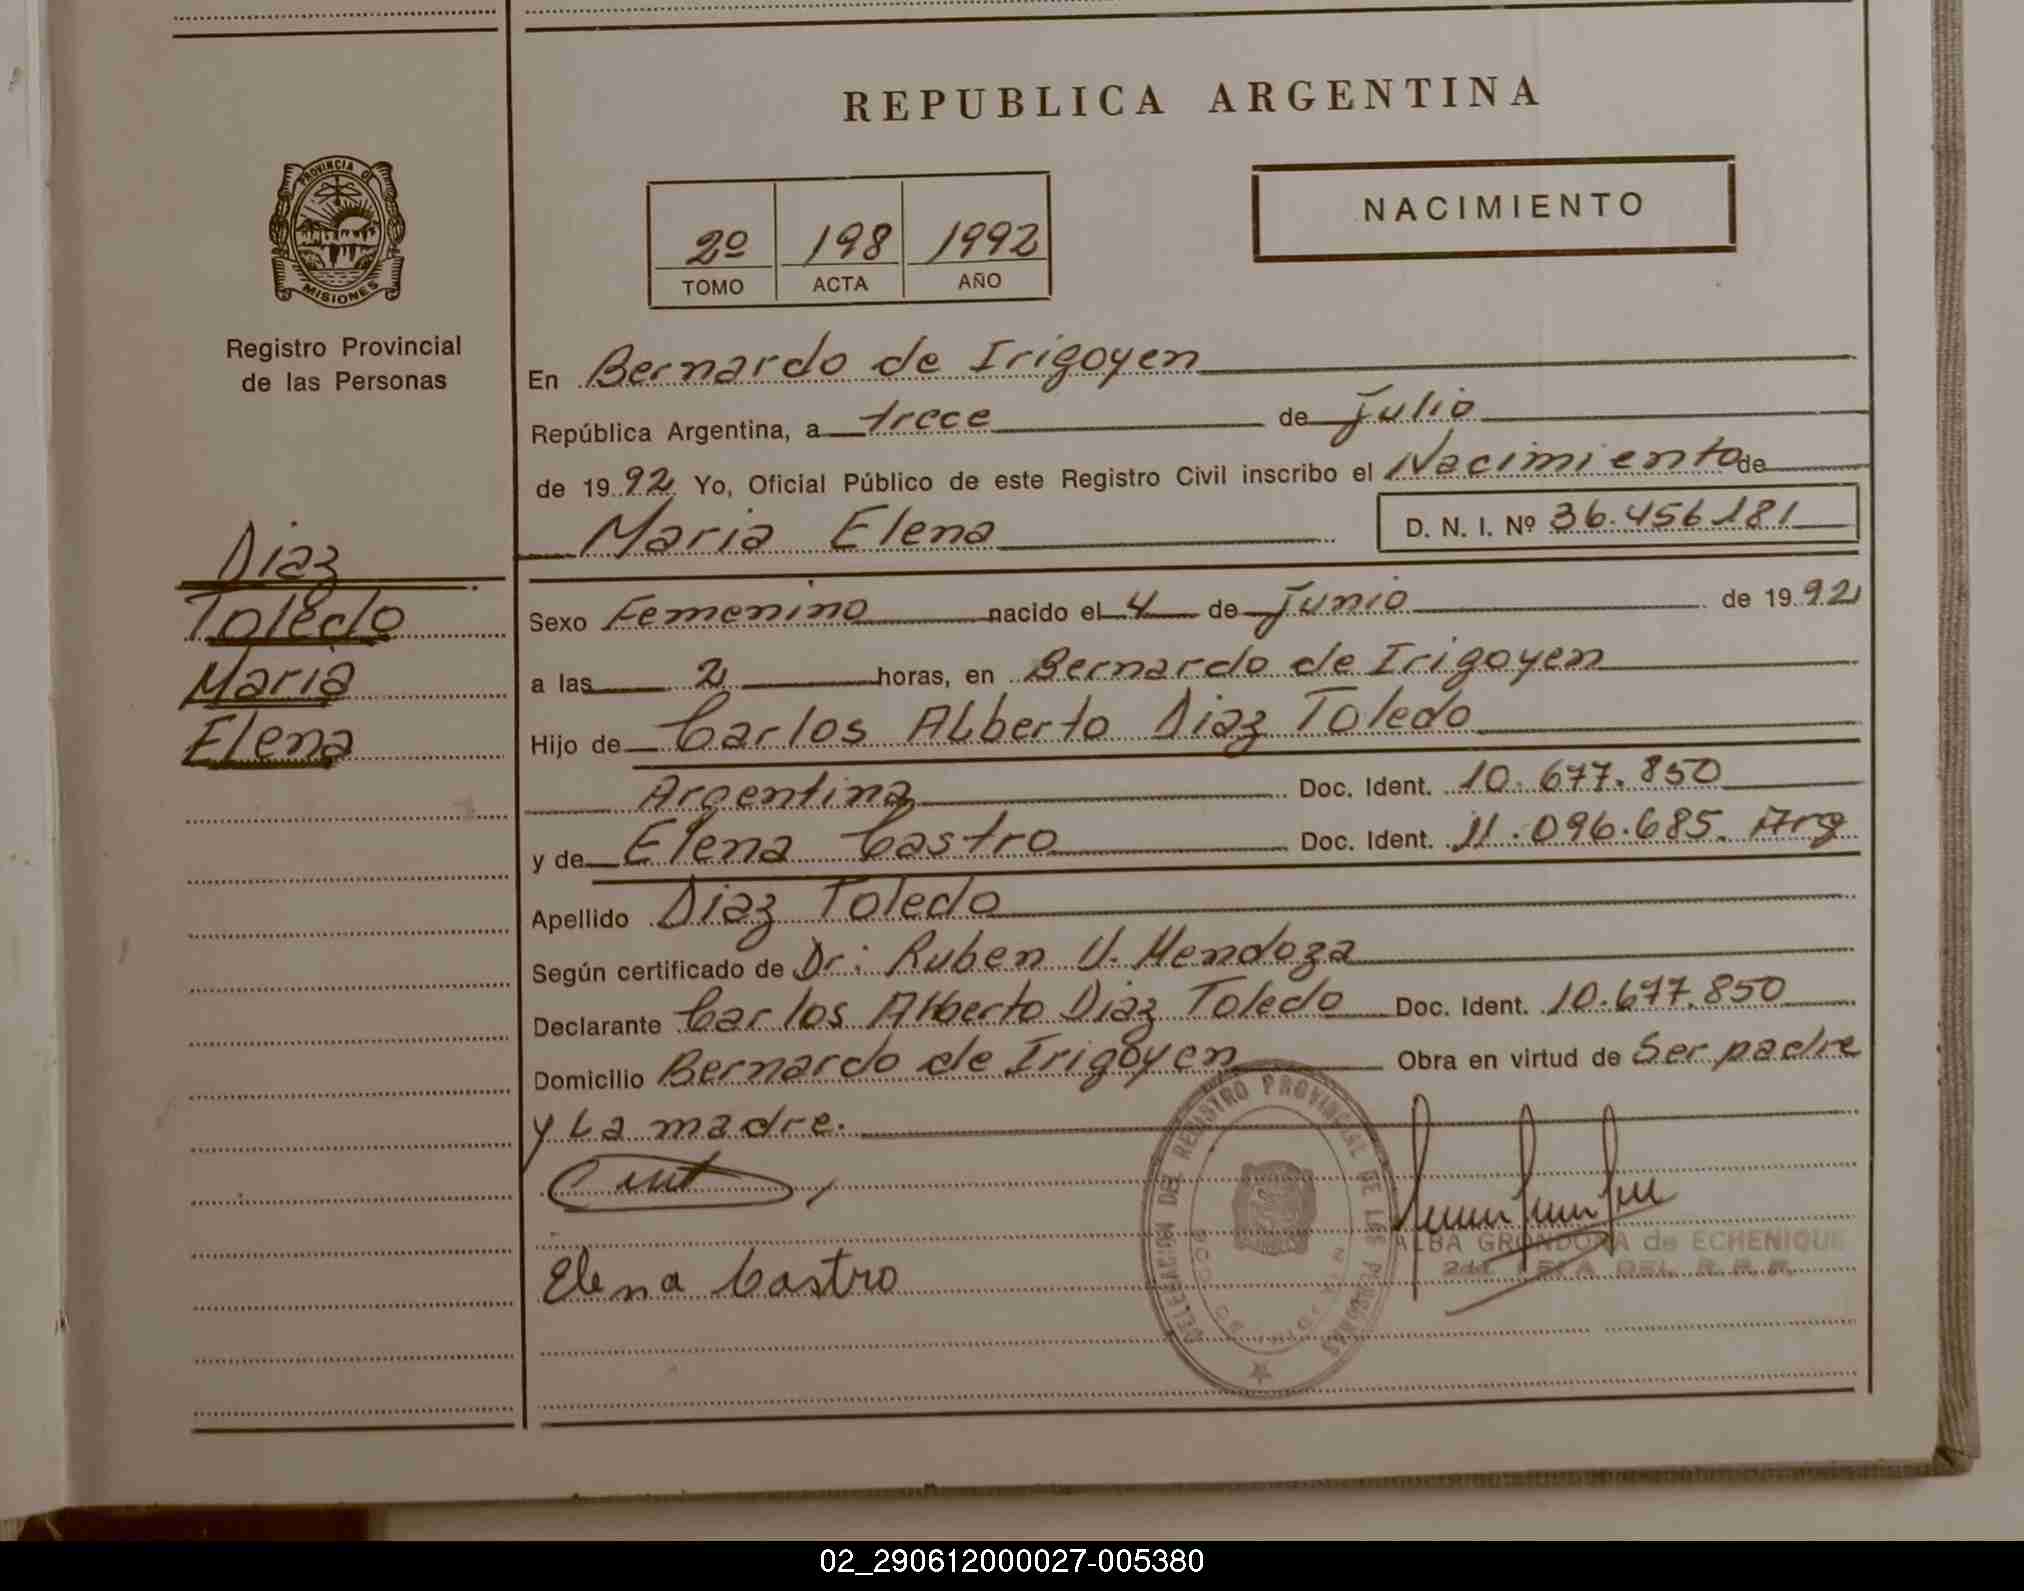 REPUBLICA ARGENTINA
PROVINCIA DE
MISIONES
Registro Provincial
de las Personas
2º 198 1992
TOMO ACTA AÑO
NACIMIENTO
En Bernardo de Irigoyen
República Argentina, a trece de Julio
de 19 92 Yo, Oficial Público de este Registro Civil inscribo el Nacimiento de
Maria Elena D. N. I. Nº 36.456181
Diaz
Toledo
Maria
Elena
Sexo Femenino nacido el 4 de Junio de 19 92
a las 2 horas, en Bernardo de Irigoyen
Hijo de Carlos Alberto Diaz Toledo
Argentina Doc. Ident. 10.677.850
y de Elena Castro Doc. Ident. 11.096.685. Arg
Apellido Diaz Toledo
Según certificado de Dr: Ruben V. Mendoza
Declarante Carlos Alberto Diaz Toledo Doc. Ident. 10.677.850
Domicilio Bernardo de Irigoyen Obra en virtud de Ser padre
y La madre.
DELEGACION DEL REGISTRO PROVINCIAL DE LAS PERSONAS
ALBA GRONDONA de ECHENIQUE
DEL R. P. P.
Elena Castro
02_290612000027-005380